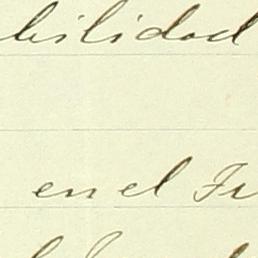 bilidad
en el Fr